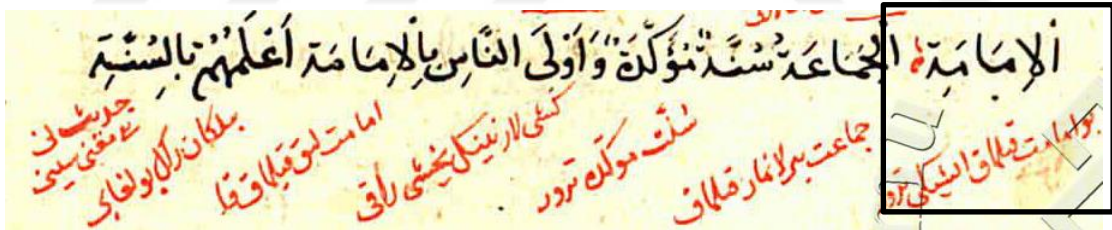 اَلْاِمَامَةِ الْجَمَاعَةُ سُنَّةٌ مُؤَكَّدَةٌ وَاَوْلَى النَّاسِ بِالْاِمَامَةِ اَعْلَمُهُمْ بِالسُّنَّةِ
بو امامت قیلماق ایشیکی ترور
جماعت بیرلا نماز قیلماق
سنّت موکده ترور
کشی لارنینک یخشی راقی
امامت لیق قیلماق قا
بلکان راک بولغای
حدیث نی
معنی سینی